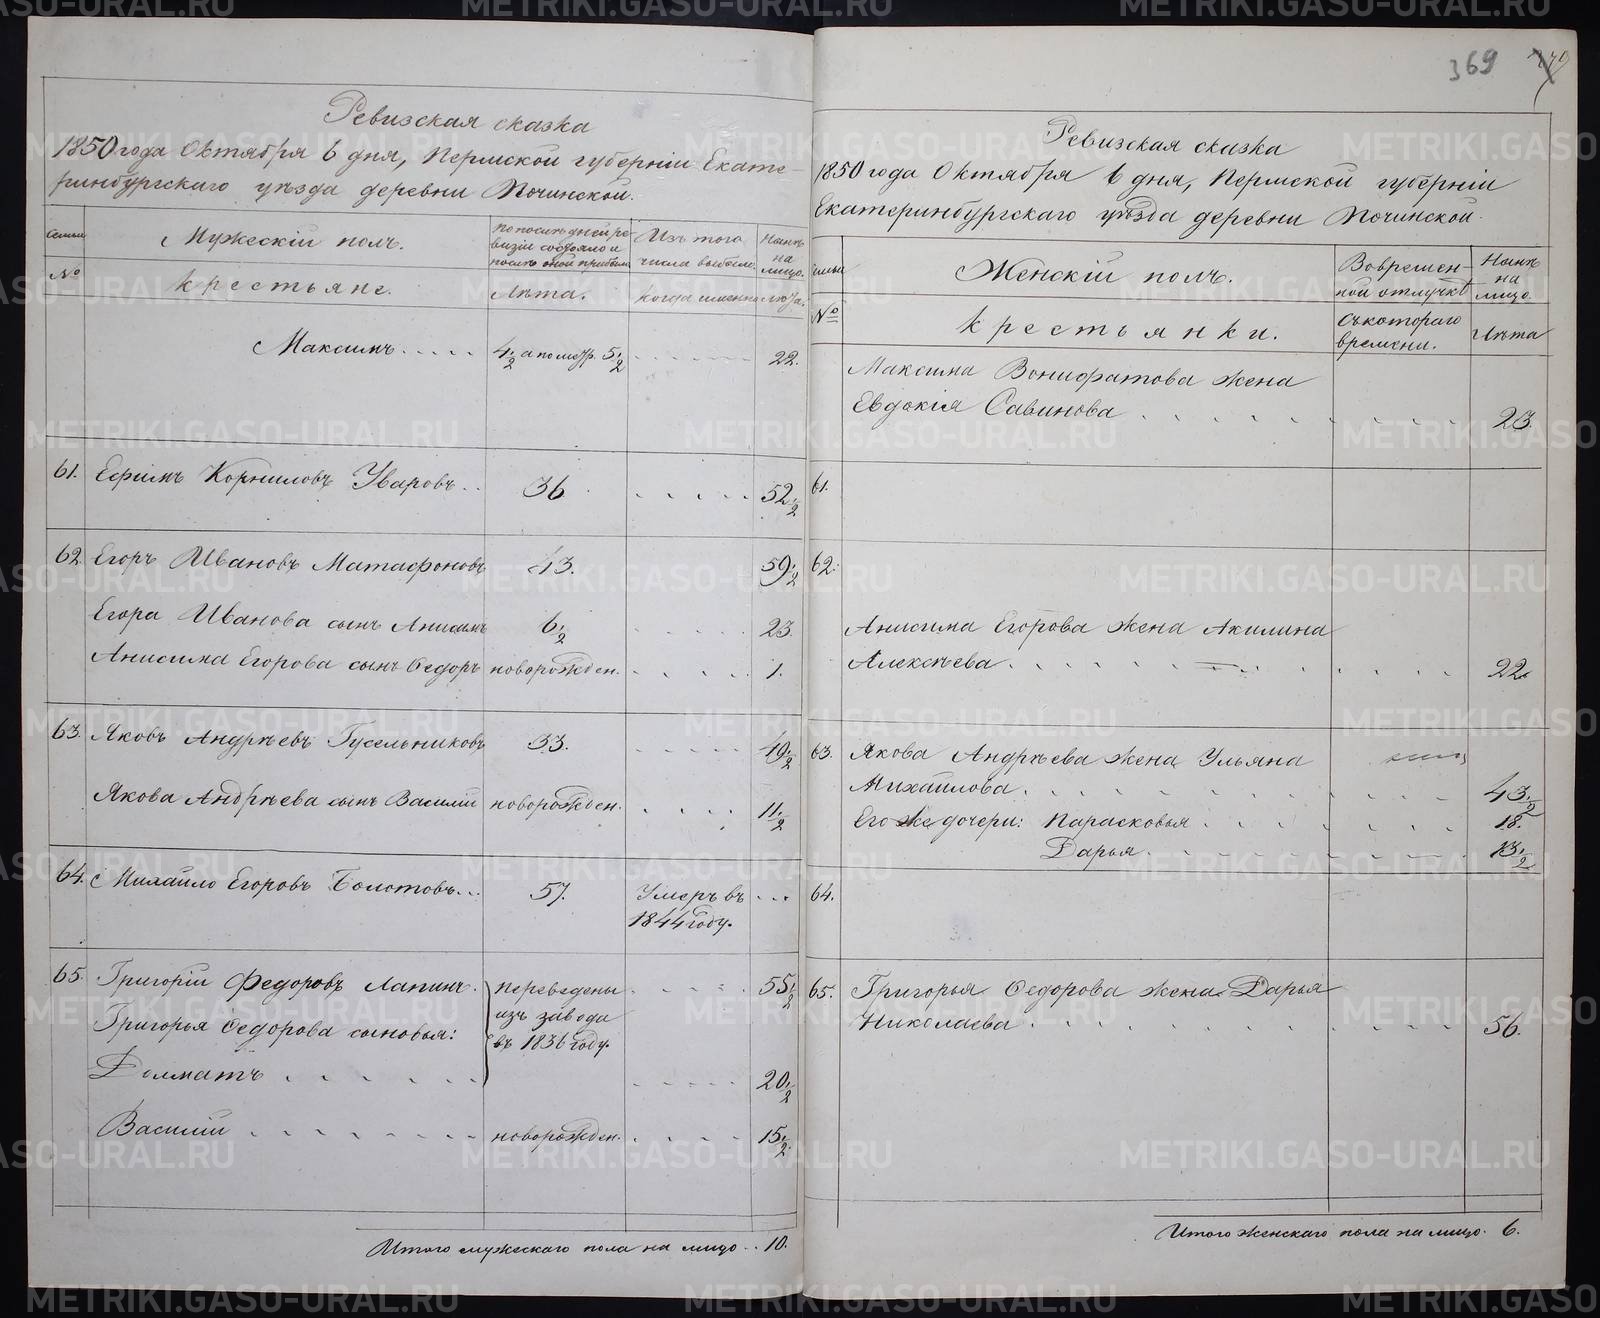 Ревизская сказка
1850 года Октября 6 дня, Пермской губерніи Екате-
ринбургскаго уѣзда деревни Починской.
Семьи
Мужескій полъ.
По последней ре-
визіи состояло и
послѣ оной прибыло
Изъ того
числа выбыло.
Нынѣ
на
лицо.
№
крестьяне.
Лѣта.
Когда именно
Лѣта.
Максимъ.....
4½ а по медр. 5½
22.
61.
Ефимъ Корниловъ Уваровъ..
36
52½
62.
Егоръ Ивановъ Матафоновъ
43.
59½
Егора Иванова сынъ Анисимъ
6½
23.
Анисима Егорова сынъ Ѳедоръ
новорожден.
1.
63.
Яковъ Андрѣевъ Гусельниковъ
33.
49½
Якова Андрѣева сынъ Василій
новорожден.
11½
64.
Михайло Егоровъ Болотовъ...
57.
Умеръ въ
1844 году.
65.
Григорій Федоровъ Лапинъ.
переведены
изъ завода
въ 1836 году.
55½
Григорья Ѳедорова сыновья:
Долматъ
20½
Василій
новорожден.
15½
Итого мужескаго пола на лицо.. 10.
369
Ревизская сказка
1850 года Октября 6 дня, Пермской губерніи
Екатеринбургскаго уѣзда деревни Починской.
Семьи
Женскій полъ.
Во времен-
ной отлучкѣ
Нынѣ
на
лицо.
№
крестьянки.
Съ котораго
времени.
Лѣта
Максима Вонифатова жена
Евдокія Савинова
23.
61.
62.
Анисима Егорова жена Акилина
Алексѣева
22.
63.
Якова Андрѣева жена Ульяна
Михайлова
43½
Его же дочери: Парасковья
18.
Дарья
13½
64.
65.
Григорья Ѳедорова жена Дарья
Николаева
56.
Итого женскаго пола на лицо. 6.
METRIKI.GASO-URAL.RU